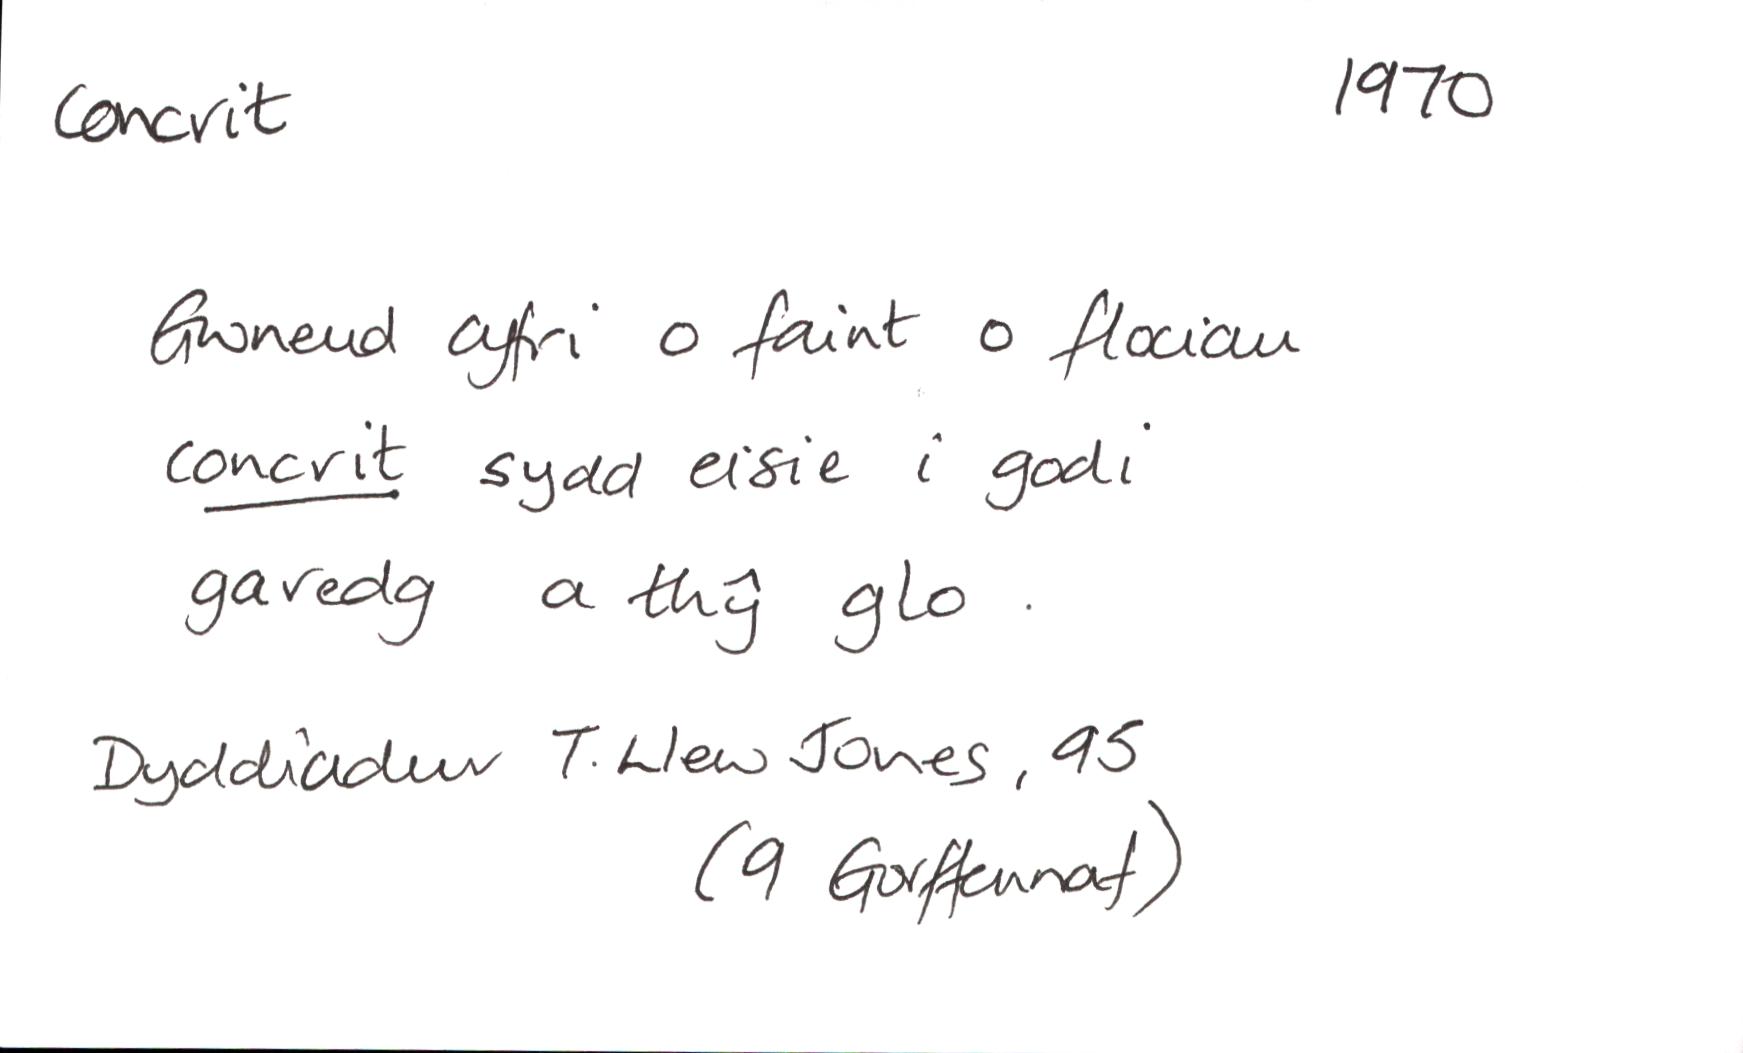 concrit 1970
Gwneud cyfri o faint o flociau
concrit sydd eisie i godi
garedg a thŷ glo.
Dyddiadur T. Llew Jones, 95
(9 Gorffennaf)